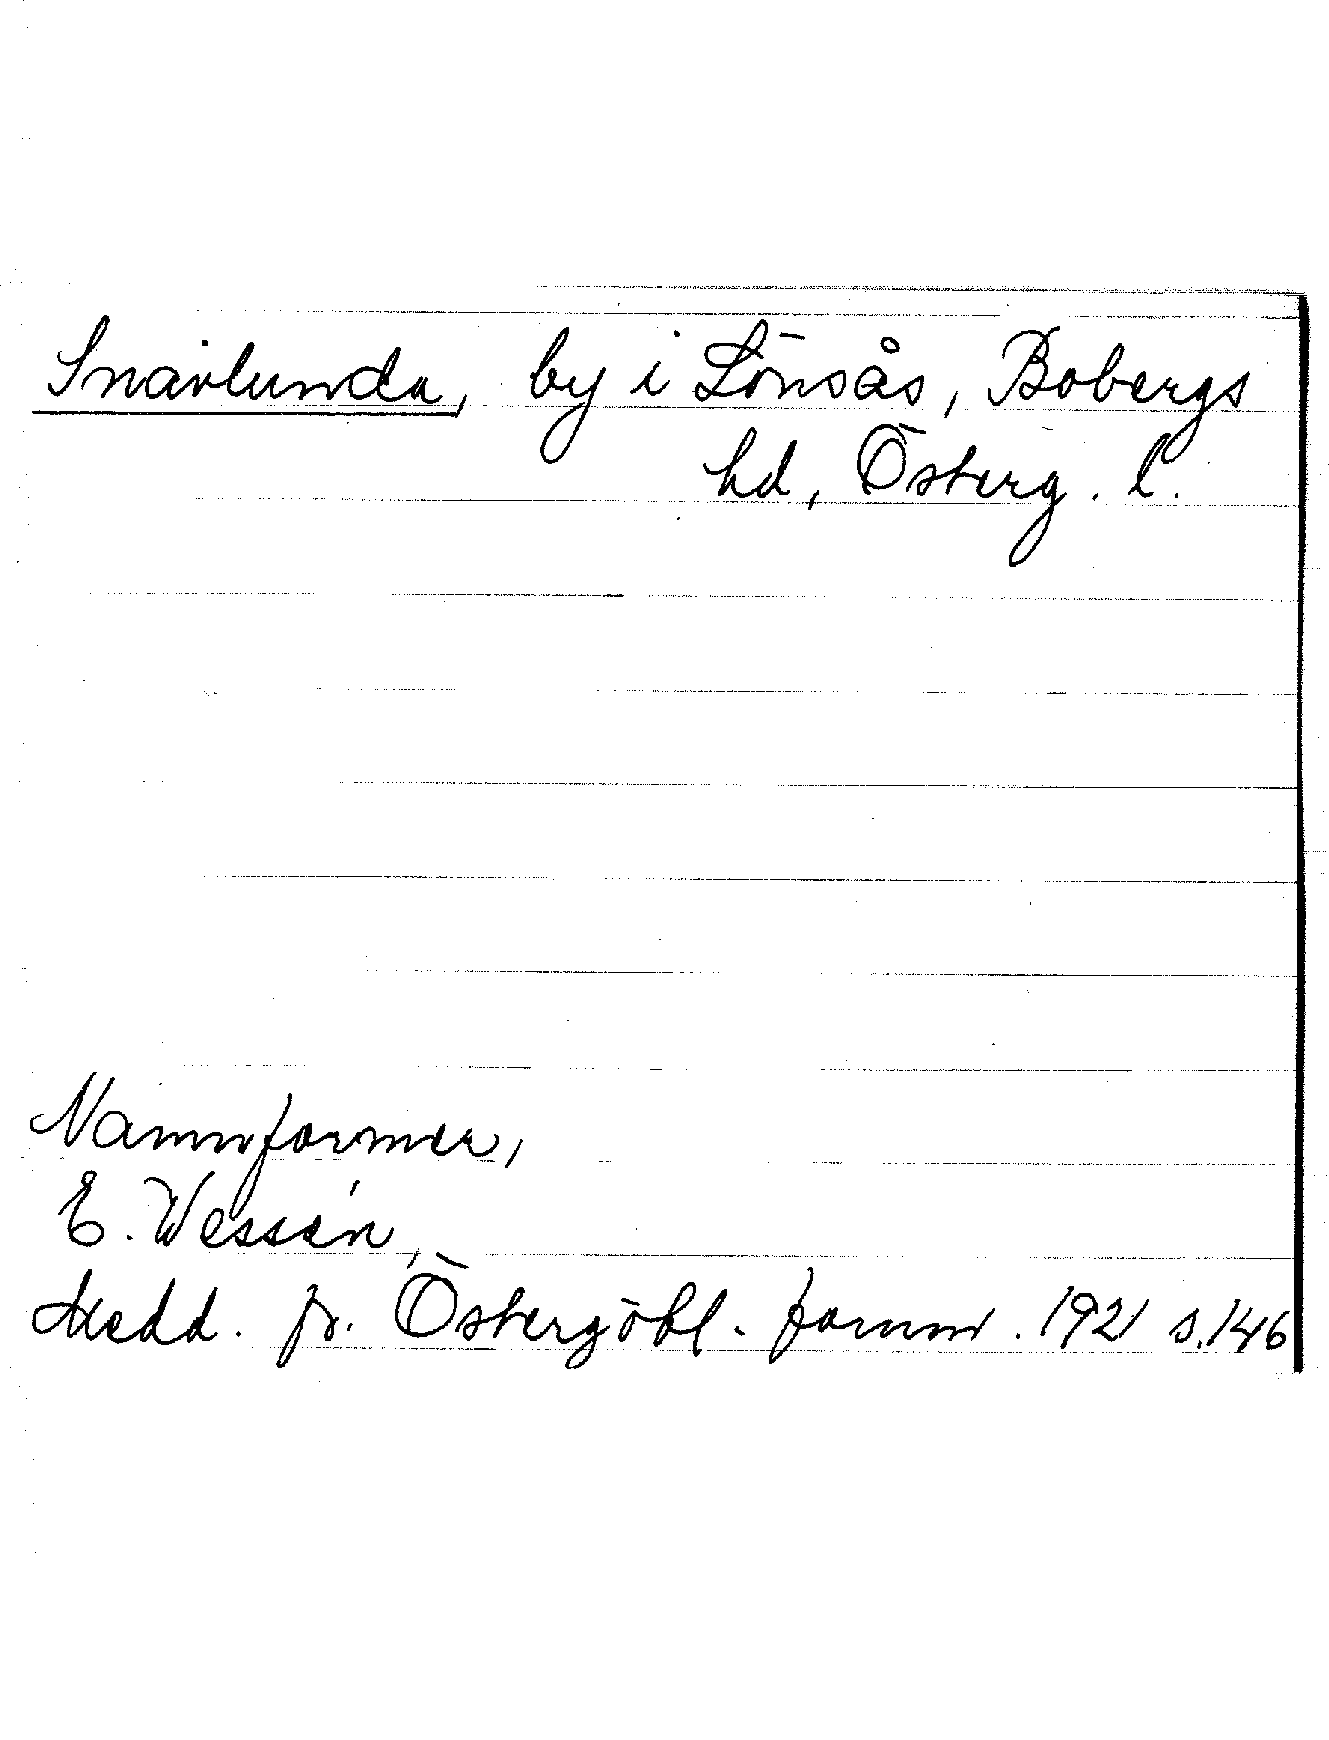 Snavlunda, by i Lönsås, Bobergs
hd, Österg. l.
Namnformer,
E. Wessén,
Medd. fr. Östergötl. fornm. 1921 s.146